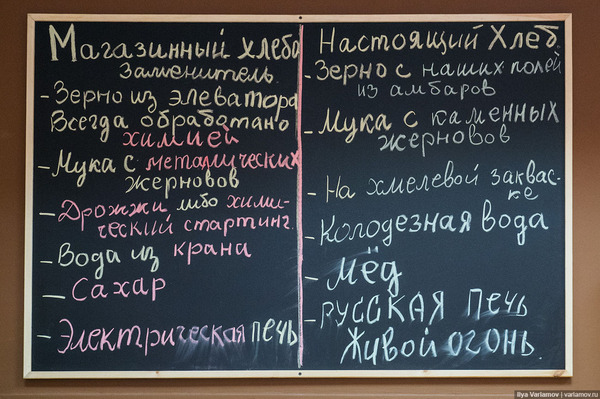 Магазинный хлебо
Заменитель.
- Зерно из элеватора
Всегда обработано
химией
- Мука с металических
жерновов
- Дрожжи либо хими-
ческий стартинг.
- Вода из крана
- Сахар
- Электрическая печь
Настоящий Хлеб.
- Зерно с наших полей
из амбаров
- Мука с каменных
жерновов
- На хмелевой заквас-
ке
- Колодезная вода
- Мёд
- РУССКАЯ Печь
Живой огонь.
Ilya Varlamov | varlamov.ru